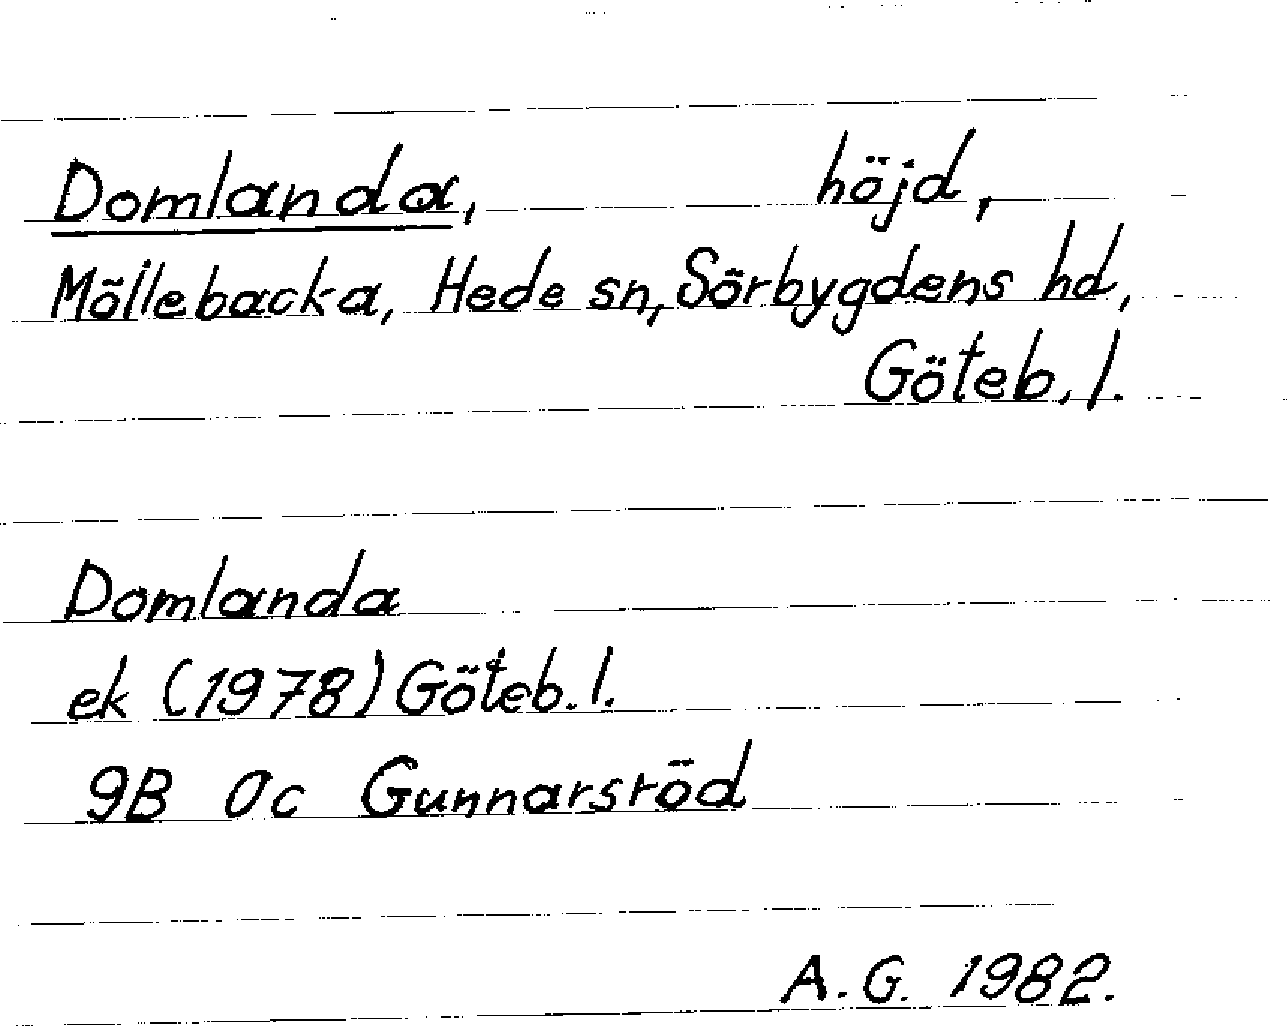 Domlanda, höjd,
Möllebacka, Hede sn, Sörbygdens hd,
Göteb. l.
Domlanda
ek (1978) Göteb. l.
9B 0c Gunnarsröd
A. G. 1982.